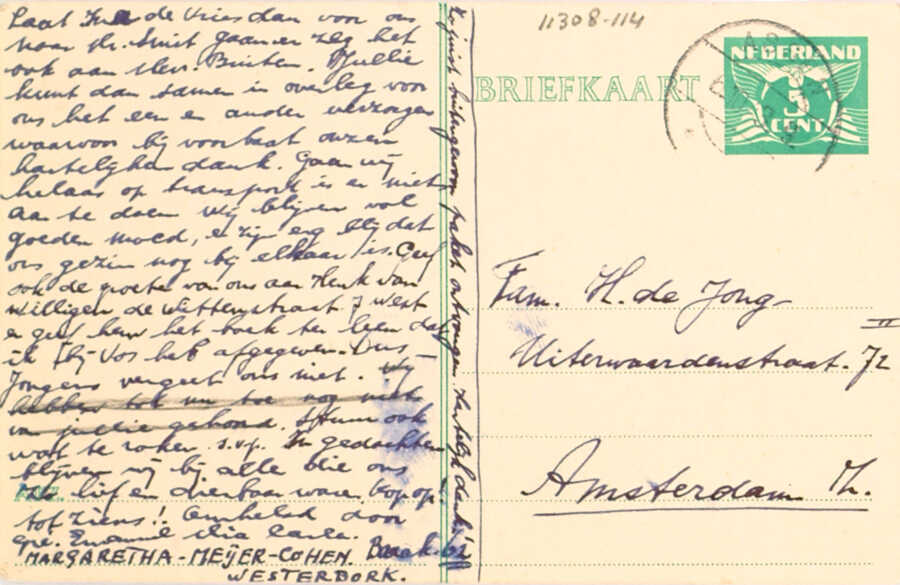 Laat Ina de Vries dan voor ons
naar Mr. Smit gaan en zeg het
ook aan Mev. Buiten. Jullie
kunt dan samen in overleg voor
ons het een en ander verzorgen
waarvoor bij voorbaat onzen
hartelijken dank. Gaan wij
helaas op transport is er niets
aan te doen. Wij blijven vol
goeden moed, en zijn erg blij dat
ons gezin nog bij elkaar is. Geef
ook de groeten van ons aan Henk van
Willigen de Wittenstraat 7 West
en geef hem het boek ter leen dat
ik bij Vos heb afgegeven. Dus
Jongens vergeet ons niet. Wij
hebben tot nu toe nog niets
van jullie gehoord. Stuur ook
wat te roken s.v.p. In gedachten
blijven wij bij alle die ons
zo lief en dierbaar waren. Kop op!
tot ziens!! Omhelsd door
Gre. Emanuel Mia Carla.
MARGARETHA-MEIJER-COHEN. Barak 62
WESTERBORK.
Zojuist buitengewoon pakket ontvangen. Hartelijk dank!
11308-114
BRIEFKAART
NEDERLAND
5
CENT
Fam. H. de Jong
Uiterwaardenstraat. 72 II
Amsterdam Z.